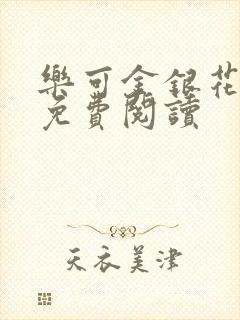 樂可金銀花
免費閱讀
天衣美津